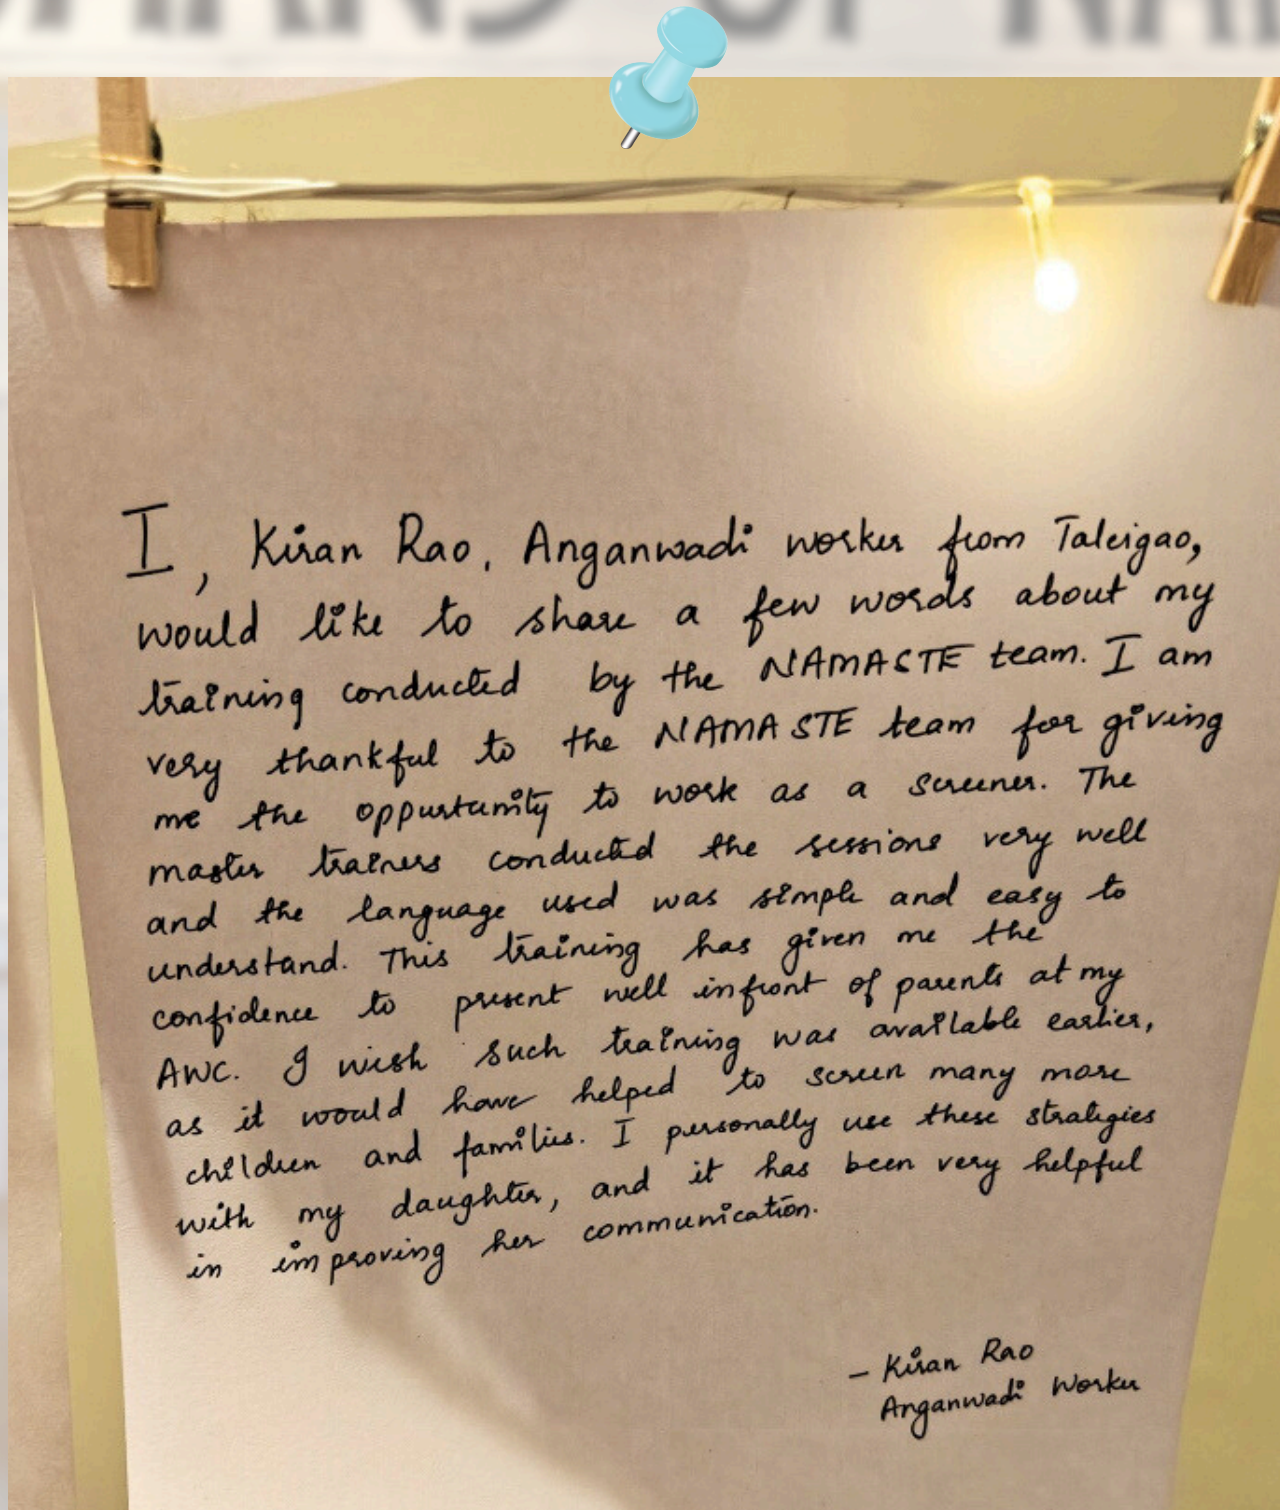 I, Kiran Rao, Anganwadi worker from Taleigao,
would like to share a few words about my
training conducted by the NAMASTE team. I am
very thankful to the NAMASTE team for giving
me the oppurtunity to work as a screener. The
master trainers conducted the sessions very well
and the language used was simple and easy to
understand. This training has given me the
confidence to present well infront of parents at my
AWC. I wish such training was available earlier,
as it would have helped to screen many more
children and families. I personally use these strategies
with my daughter, and it has been very helpful
in improving her communication.
- Kiran Rao
Anganwadi Worker